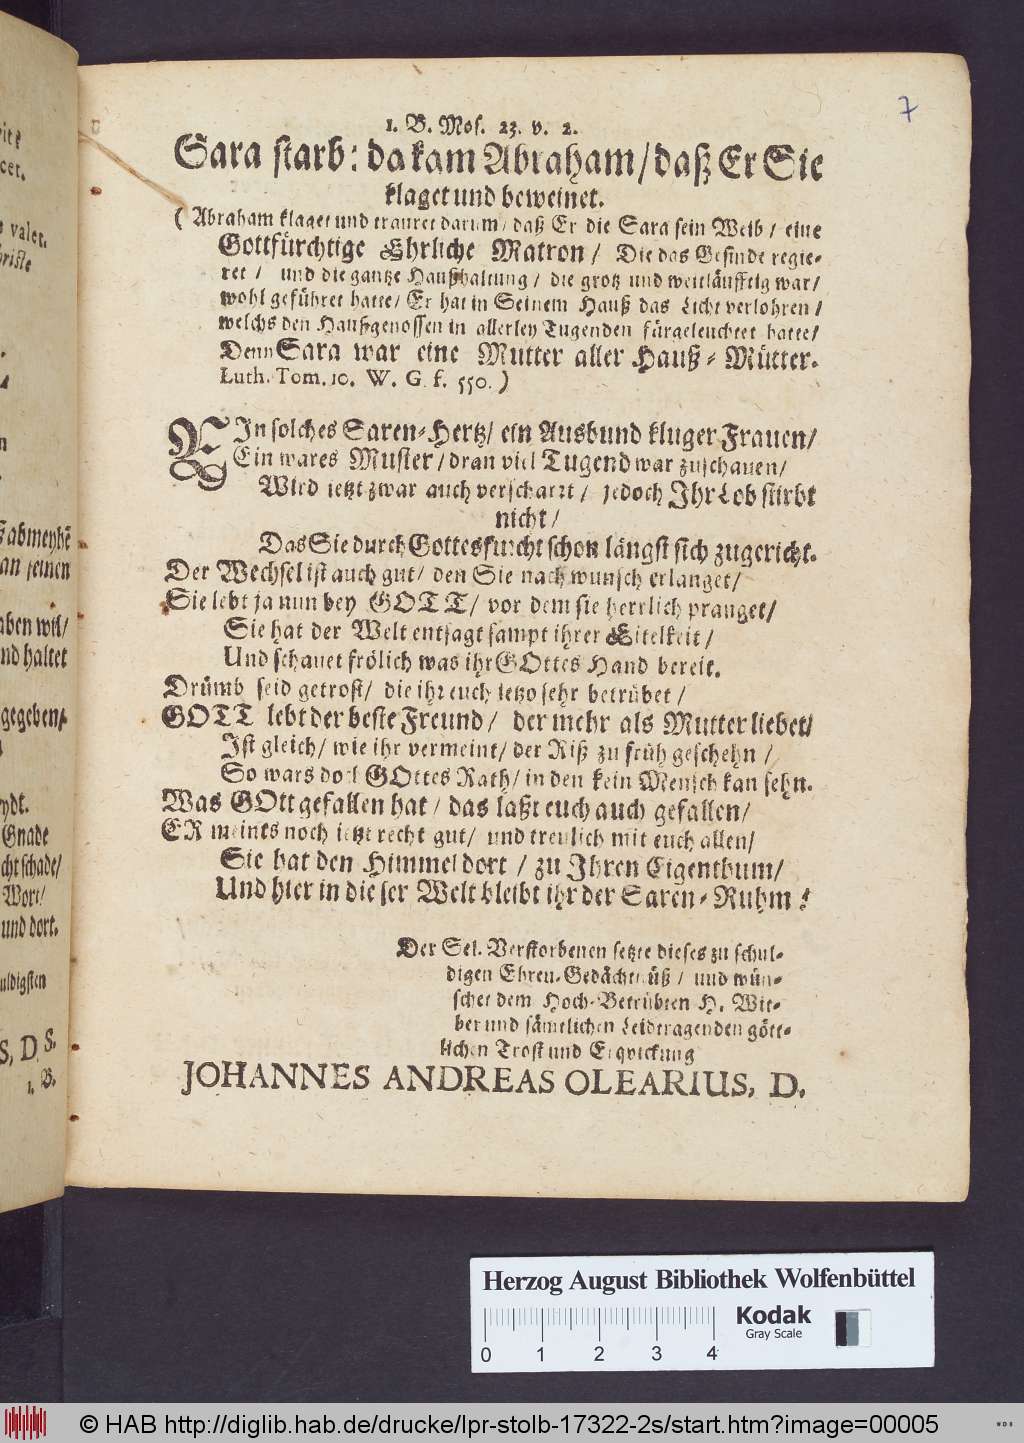 vit?
cet.
valet.
briste
n
abmeyhẽ
an seinen
aben wil/
nd haltet
gegeben/
ydt.
Gnade
cht schade/
Wort/
und dort.
uldigsten
S, D. S.
1. B.
7
1. B. Mos. 23. v. 2.
Sara starb: da kam Abraham/ daß Er Sie
klaget und beweinet.
( Abraham klaget und trauret darum/ daß Er die Sara sein Weib/ eine
Gottfürchtige Ehrliche Matron/ Die das Gesinde regie-
ret/ und die gantze Haußhaltung/ die groß und weitläufftig war/
wohl geführet hatte/ Er hat in Seinem Hauß das Licht verlohren/
welchs den Haußgenossen in allerley Tugenden fürgeleuchtet hatte/
Denn Sara war eine Mutter aller Hauß-Mütter.
Luth. Tom. 10. W. G. f. 550. )
EIn solches Saren-Hertz/ ein Ausbund kluger Frauen/
Ein wares Muster/ dran viel Tugend war zuschauen/
Wird ietzt zwar auch verscharrt/ jedoch Ihr Lob stirbt
nicht/
Das Sie durch Gottesfurcht schon längst sich zugericht.
Der Wechsel ist auch gut/ den Sie nach wunsch erlanget/
Sie lebt ja nun bey GOTT/ vor dem sie herrlich pranget/
Sie hat der Welt entsagt sampt ihrer Eitelkeit/
Und schauet frölich was ihr GOttes Hand bereit.
Drümb seid getrost/ die ihr euch ietzo sehr betrübet/
GOTT lebt der beste Freund/ der mehr als Mutter liebet/
Ist gleich/ wie ihr vermeint/ der Riß zu früh geschehn/
So wars doch GOttes Rath/ in den kein Mensch kan sehn.
Was GOtt gefallen hat/ das laßt euch auch gefallen/
ER meints noch ietzt recht gut/ und treulich mit euch allen/
Sie hat den Himmel dort/ zu Ihren Eigenthum/
Und hier in dieser Welt bleibt ihr der Saren-Ruhm!
Der Sel. Verstorbenen setzte dieses zu schul-
digen Ehren-Gedächtnüß/ und wün-
schet dem Hoch-Betrübten H. Wit-
ber und sämtlichen Leidtragenden gött-
lichen Trost und Erqvickung
JOHANNES ANDREAS OLEARIUS, D.
Herzog August Bibliothek Wolfenbüttel
Kodak
Gray Scale
0 1 2 3 4
© HAB http://diglib.hab.de/drucke/lpr-stolb-17322-2s/start.htm?image=00005